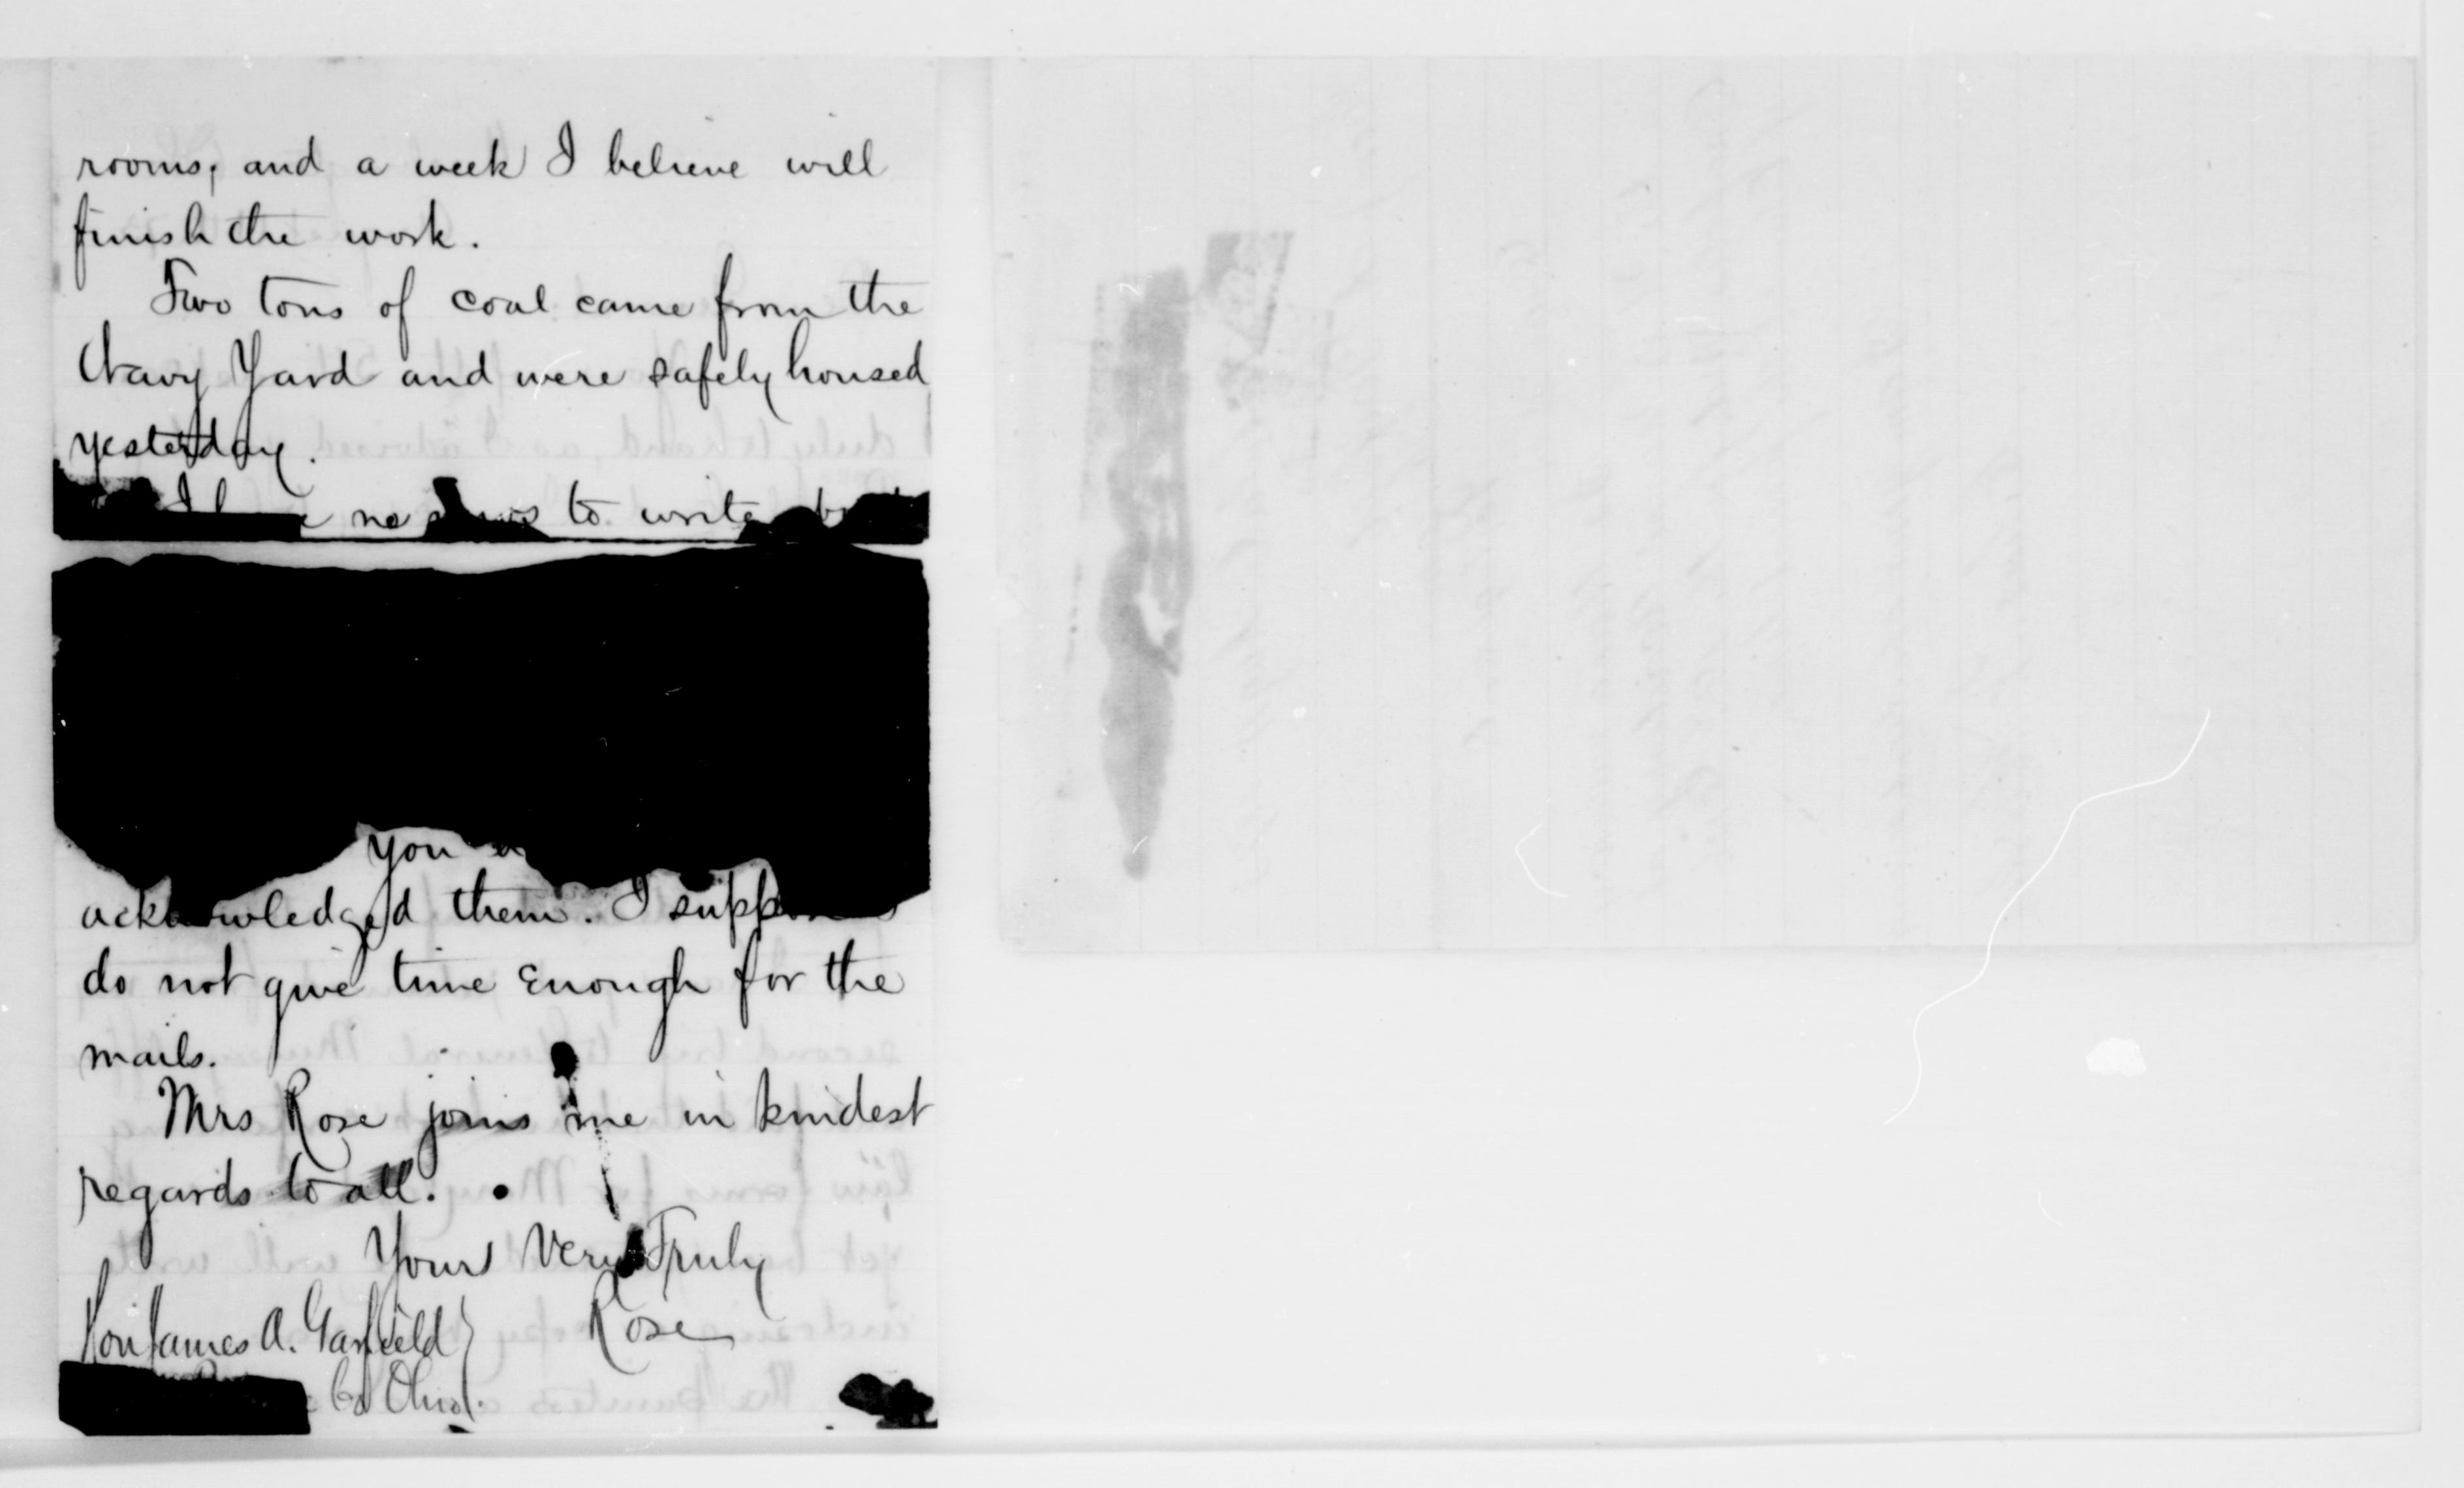 rooms, and a week I believe will
finish the work.
Two tons of coal came from the
Navy Yard and were safely housed
yesterday.
I have no news to write but
you
acknowledged them. I suppose
do not give time enough for the
mails.
Mrs Rose joins me in kindest
regards to all.
Yours Very Truly
Rose
Hon James A. Garfield
Co Ohio.